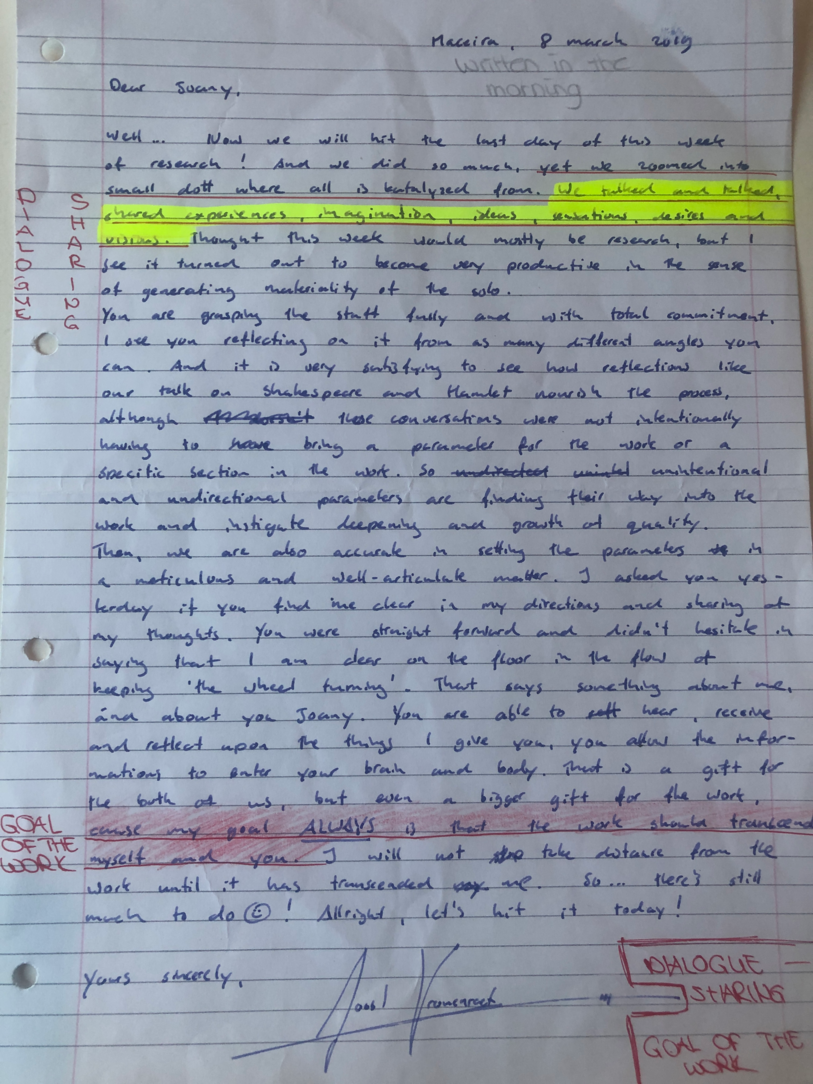 Maceira, 8 march 2019
written in the
morning
Dear Joany,
Well... Now we will hit the last day of this week
of research! And we did so much, yet we zoomed into
small dott where all is katalyzed from. We talked and talked,
shared experiences, imagination, ideas, sensations, desires and
visions. Thought this week would mostly be research, but I
see it turned out to become very productive in the sense
of generating materiality of the solo.
You are grasping the stuff fully and with total commitment.
I see you reflecting on it from as many different angles you
can. And it is very satisfying to see how reflections like
our talk on Shakespeare and Hamlet nourish the process,
although these conversations were not intentionally
having to have bring a parameter for the work or a
specific section in the work. So undirected unintel unintentional
and undirectional parameters are finding their way into the
work and instigate deepening and growth of quality.
Then, we are also accurate in setting the parameters in
a meticulous and well-articulate matter. I asked you yes-
terday if you find me clear in my directions and sharing of
my thoughts. You were straight forward and didn't hesitate in
saying that I am clear on the floor in the flow of
keeping 'the wheel turning'. That says something about me,
ánd about you Joany. You are able to hear, receive
and reflect upon the things I give you, you allow the infor-
mations to enter your brain and body. That is a gift for
the both of us, but even a bigger gift for the work,
cause my goal ALWAYS is that the work should transcend
myself and you. I will not take distance from the
work until it has transcended me. So... there's still
much to do ☺! Allright, let's hit it today!
Yours sincerely,
DIALOGUE
SHARING
GOAL
OF THE
WORK
DIALOGUE —
SHARING
GOAL OF THE
WORK